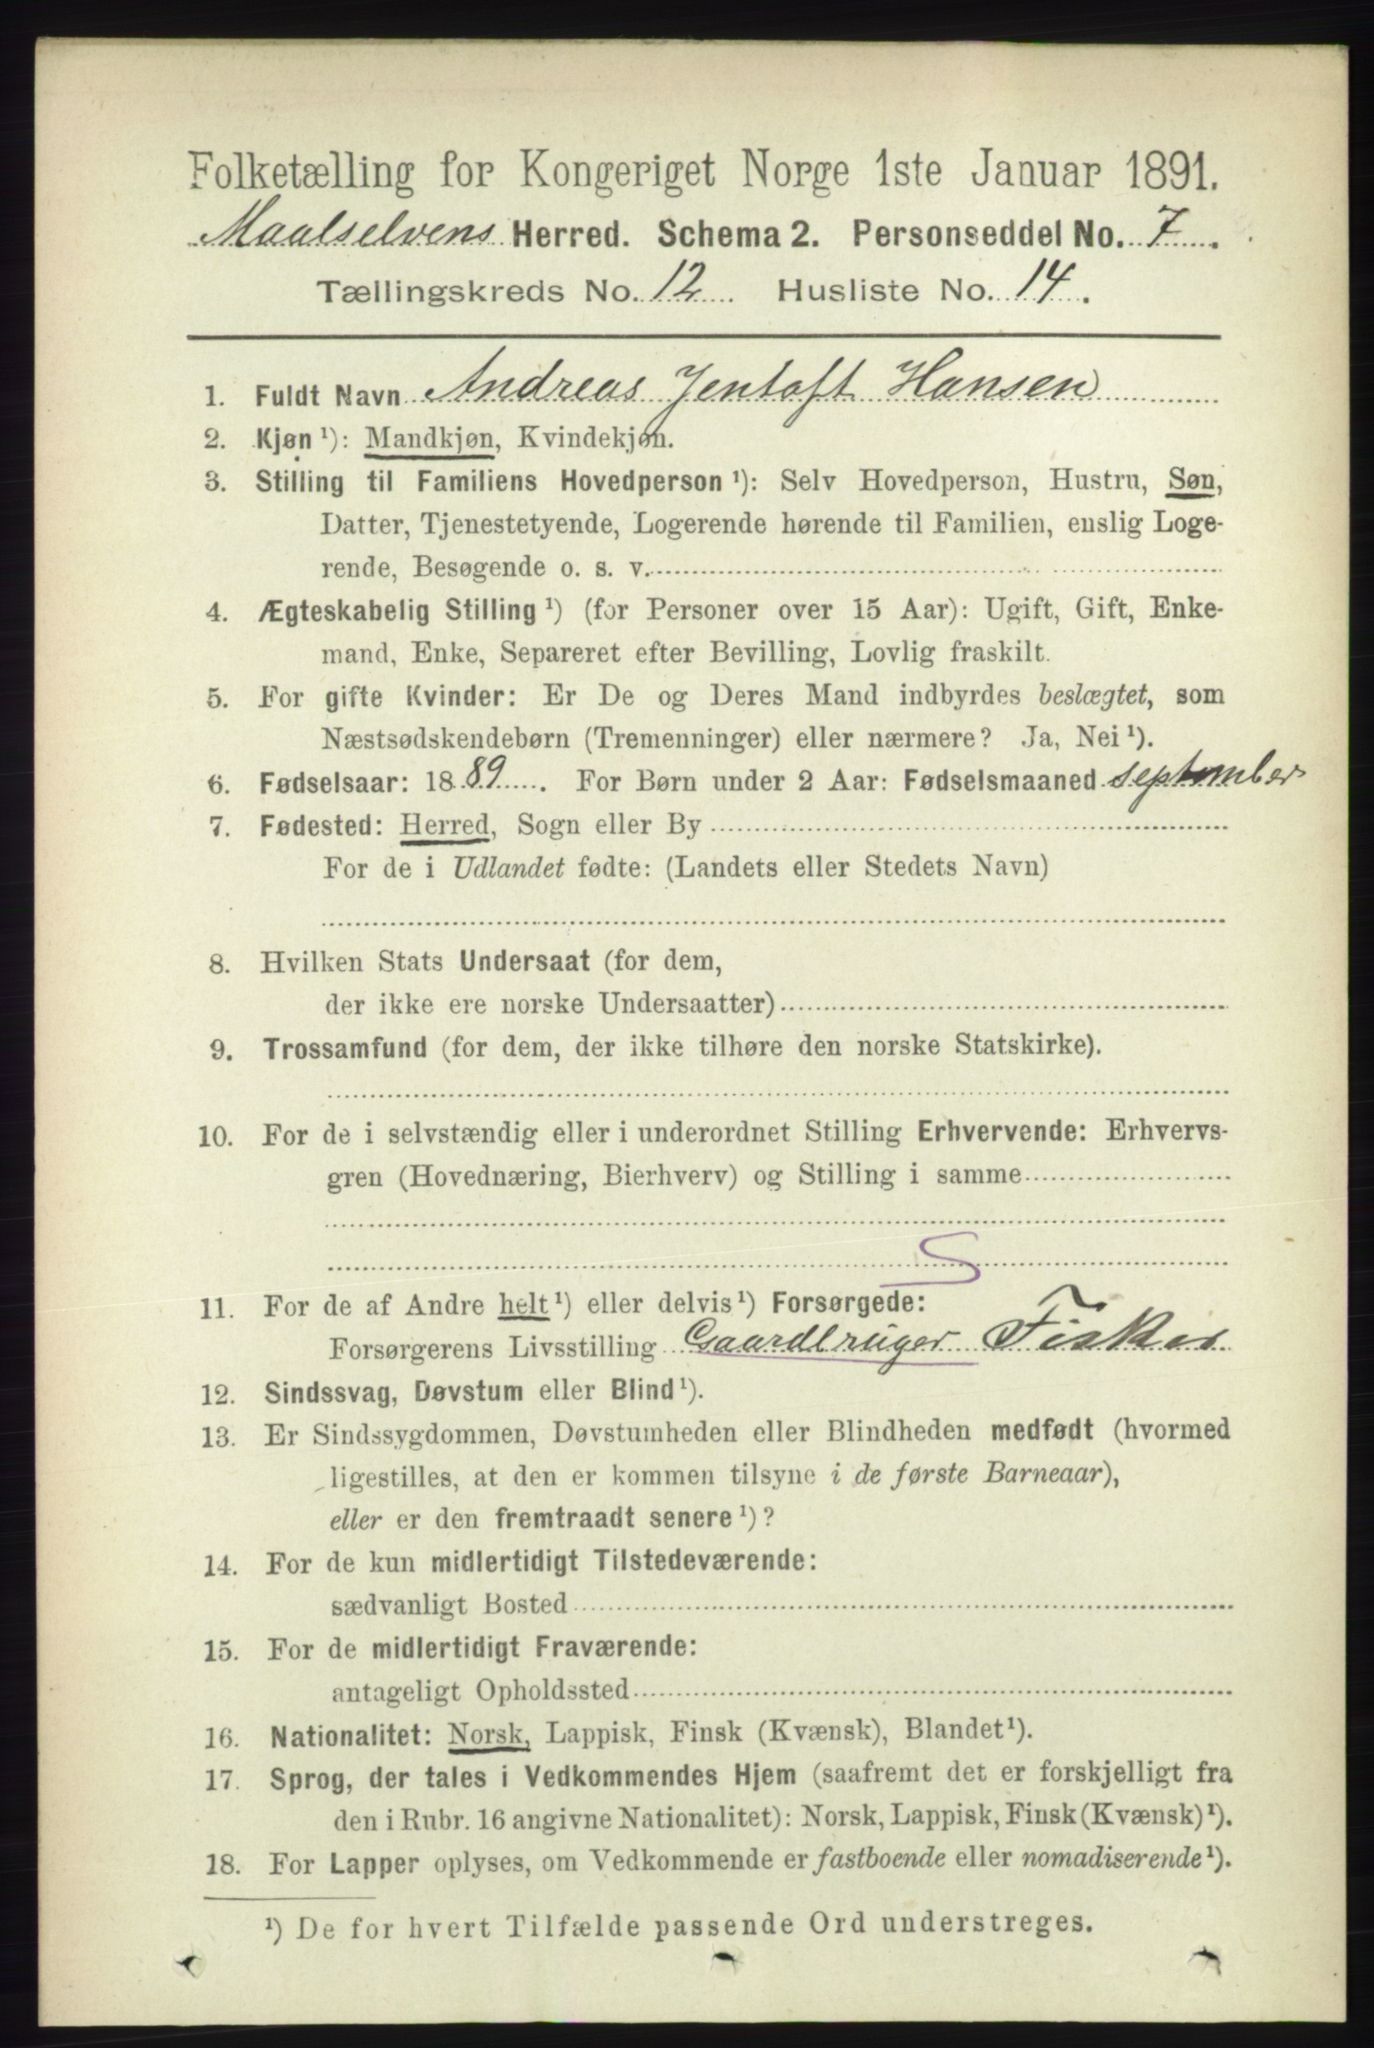 Folketælling for Kongeriget Norge 1ste Januar 1891.
Maalselvens Herred. Schema 2. Personseddel No. 7.
Tællingskreds No. 12 Husliste No. 14.
1. Fuldt Navn Andreas Jentoft Hansen
2. Kjøn ¹): Mandkjøn, Kvindekjøn.
3. Stilling til Familiens Hovedperson ¹): Selv Hovedperson, Hustru, Søn,
Datter, Tjenestetyende, Logerende hørende til Familien, enslig Loge-
rende, Besøgende o. s. v.
4. Ægteskabelig Stilling ¹) (for Personer over 15 Aar): Ugift, Gift, Enke-
mand, Enke, Separeret efter Bevilling, Lovlig fraskilt.
5. For gifte Kvinder: Er De og Deres Mand indbyrdes beslægtet, som
Næstsødskendebørn (Tremenninger) eller nærmere? Ja, Nei ¹).
6. Fødselsaar: 1889. For Børn under 2 Aar: Fødselsmaaned september
7. Fødested: Herred, Sogn eller By
For de i Udlandet fødte: (Landets eller Stedets Navn)
8. Hvilken Stats Undersaat (for dem,
der ikke ere norske Undersaatter)
9. Trossamfund (for dem, der ikke tilhøre den norske Statskirke).
10. For de i selvstændig eller i underordnet Stilling Erhvervende: Erhvervs-
gren (Hovednæring, Bierhverv) og Stilling i samme
S
11. For de af Andre helt ¹) eller delvis ¹) Forsørgede:
Forsørgerens Livsstilling Gaardbruger Fisker
12. Sindssvag, Døvstum eller Blind ¹).
13. Er Sindssygdommen, Døvstumheden eller Blindheden medfødt (hvormed
ligestilles, at den er kommen tilsyne i de første Barneaar),
eller er den fremtraadt senere ¹)?
14. For de kun midlertidigt Tilstedeværende:
sædvanligt Bosted
15. For de midlertidigt Fraværende:
antageligt Opholdssted
16. Nationalitet: Norsk, Lappisk, Finsk (Kvænsk), Blandet ¹).
17. Sprog, der tales i Vedkommendes Hjem (saafremt det er forskjelligt fra
den i Rubr. 16 angivne Nationalitet): Norsk, Lappisk, Finsk (Kvænsk) ¹).
18. For Lapper oplyses, om Vedkommende er fastboende eller nomadiserende ¹).
¹) De for hvert Tilfælde passende Ord understreges.